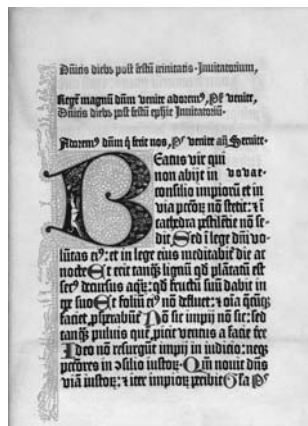 Dñicis diebꝰ post festũ trinitatis. Inuitatorium,
Regẽ magnũ dñm venite adoremꝰ, Ps̃ venite,
Dñicis diebꝰ post festũ ephie Inuitatoriũ.
Adoremꝰ dñm q̃ fecit nos, Ps̃ venite añ Seruite.
Beatus vir qui
non abijt in
consilio impioꝝ et in
via pctõꝝ nõ stetit: ⁊ ĩ
cathedra pestilẽtie nõ se-
dit Sed ĩ lege dñi vo-
lũtas eiꝰ: et in lege eius meditabit̃ die ac
nocte Et erit tanqꝫ lignũ qd̃ plãtatũ est
secꝰ decursus aqꝝ: qd̃ fructũ suũ dabit in
tꝑe suo Et foliũ eiꝰ nõ defluet: ⁊ oĩa q̃cũqꝫ
faciet ꝓsꝑabũt̃ Nõ sic impij nõ sic: sed
tanqꝫ puluis quẽ ꝓicit ventus a facie terre
Ideo nõ resurgũt impij in iudicio: neqꝫ
pctõres in ↄsilio iustoꝝ Qm̃ nouit dñs
viã iustoꝝ: ⁊ iter impioꝝ peribit Gľa Ps̃